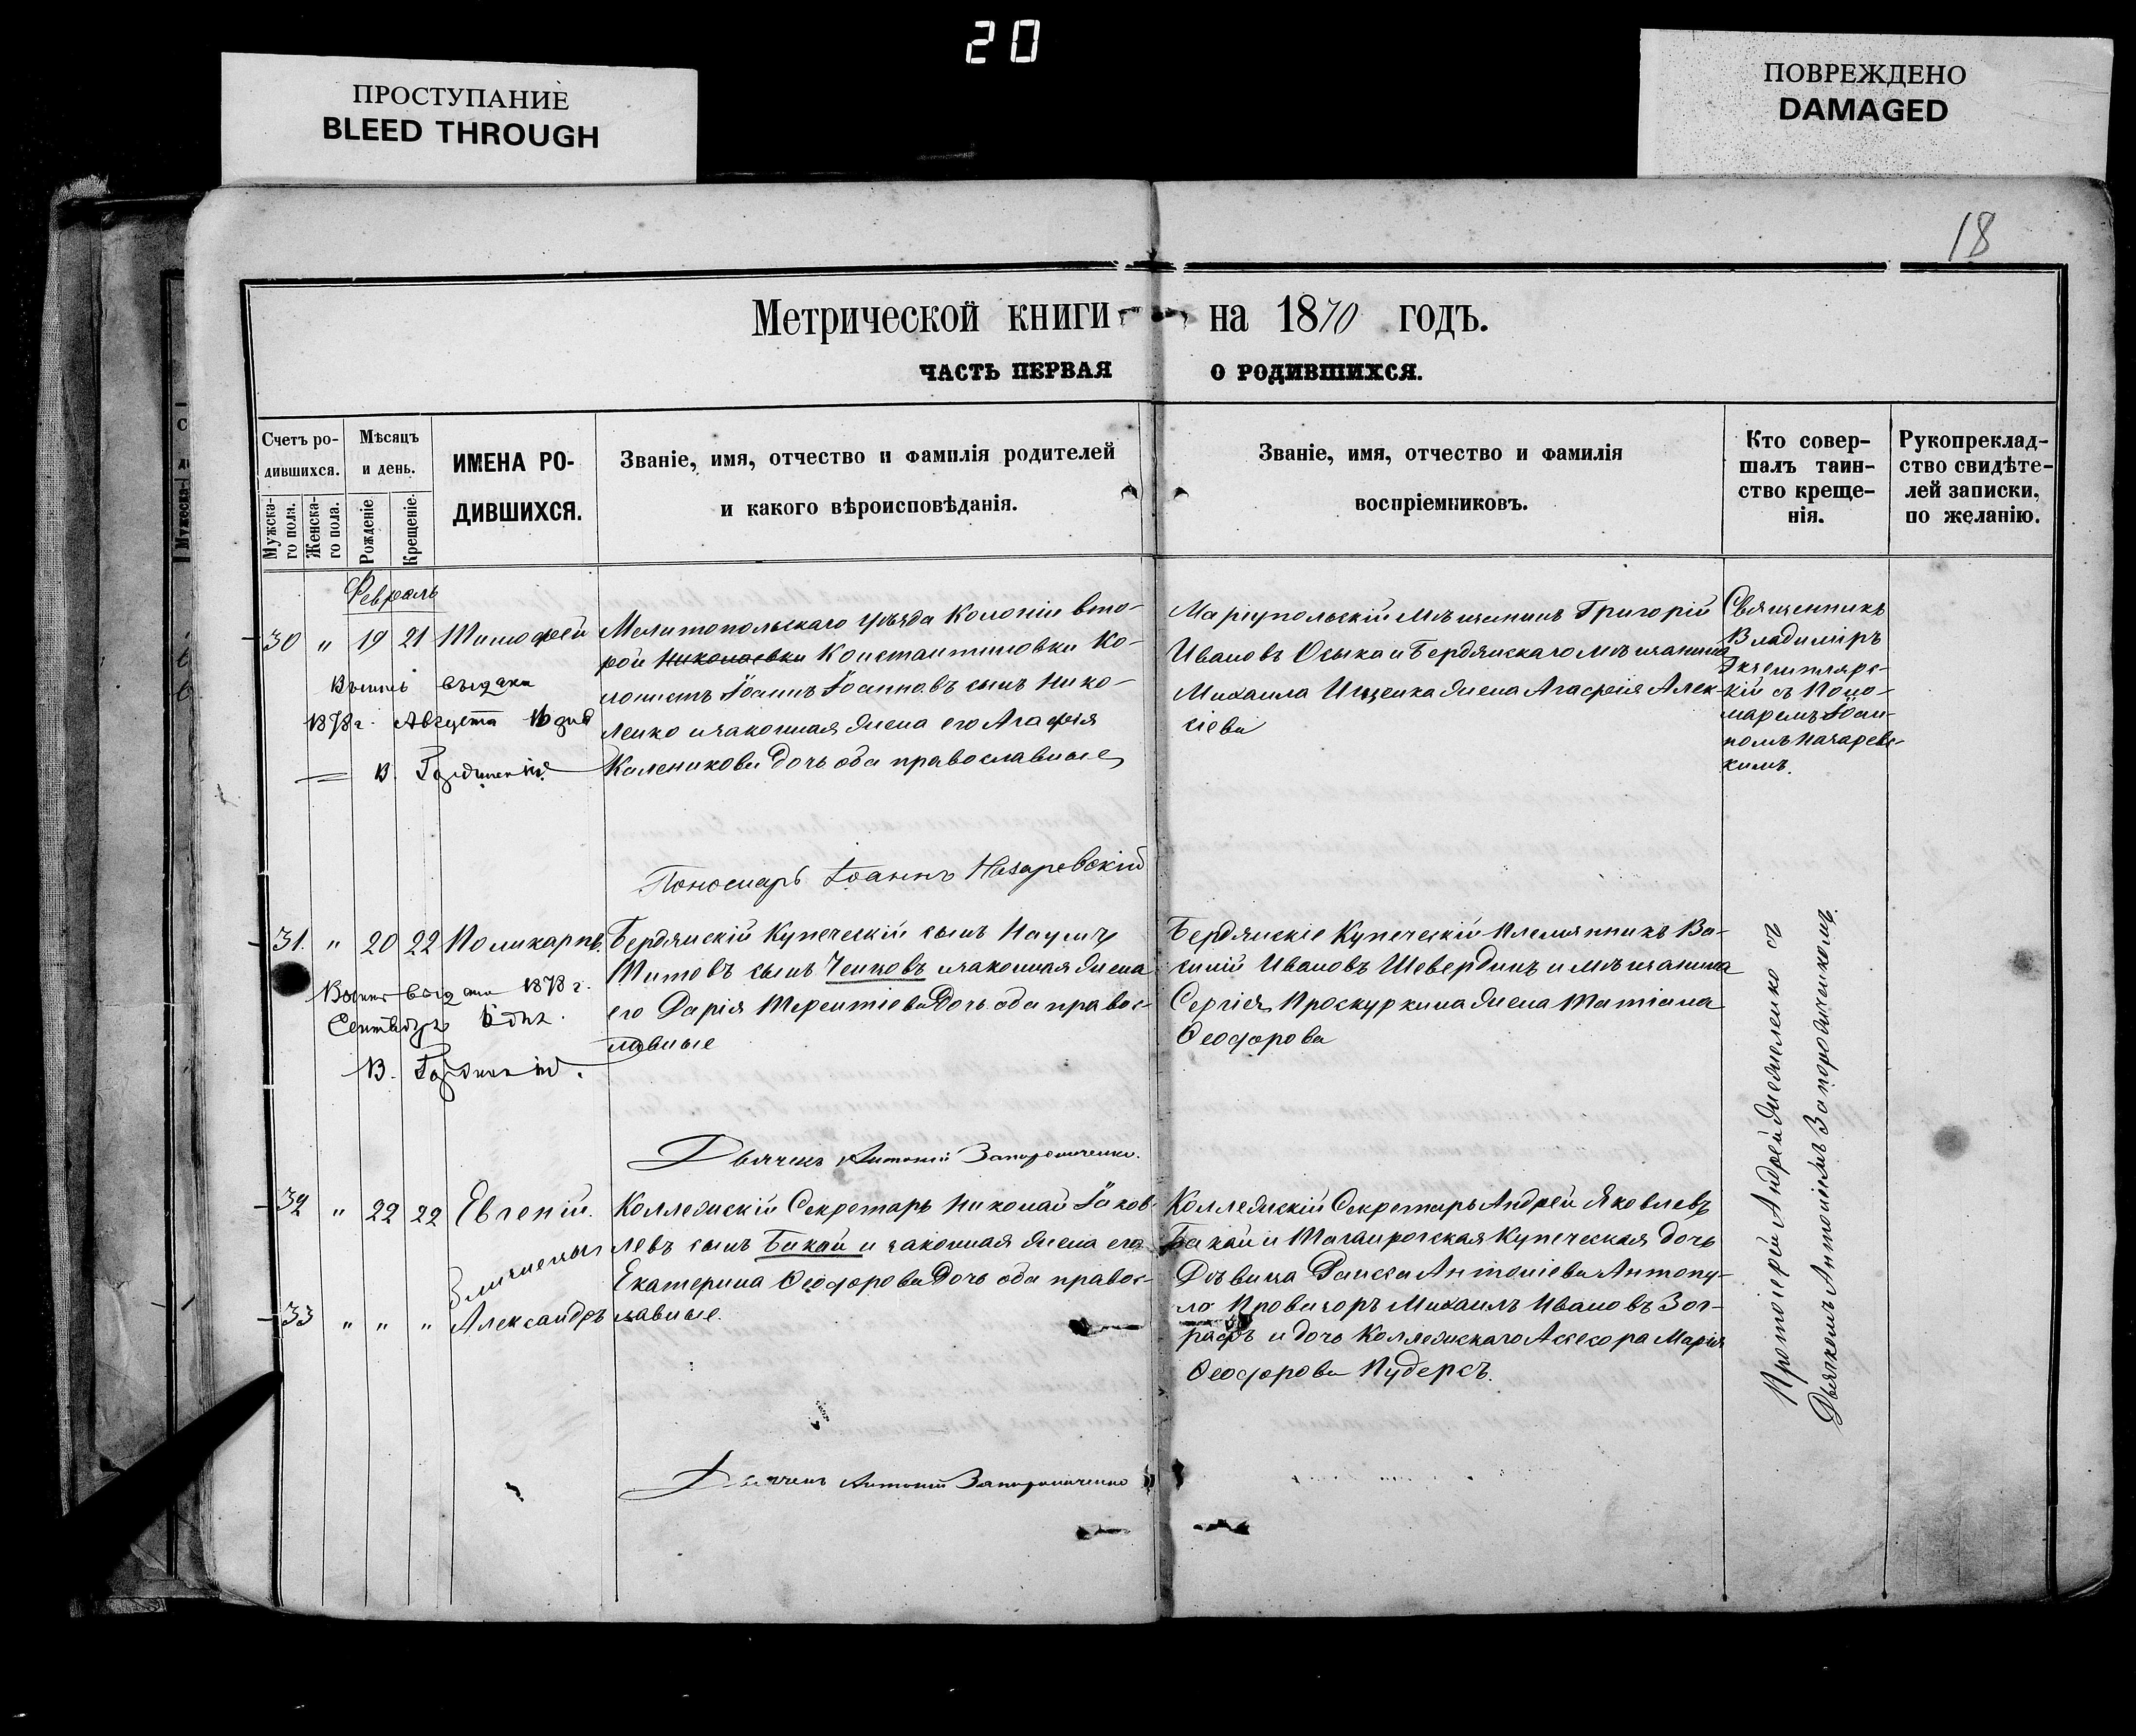 20
ПРОСТУПАНИЕ
BLEED THROUGH
ПОВРЕЖДЕНО
DAMAGED
18
Метрической книги на 1870 годъ.
ЧАСТЬ ПЕРВАЯ О РОДИВШИХСЯ.
Счетъ ро-
дившихся.
Мужска-
го пола.
Женска-
го пола.
Мѣсяцъ
и день.
Рожденіе
Крещеніе.
ИМЕНА РО-
ДИВШИХСЯ.
Званіе, имя, отчество и фамилія родителей
и какого вѣроисповѣданія.
Званіе, имя, отчество и фамилія
воспріемниковъ.
Кто совер-
шалъ таин-
ство креще-
нія.
Рукопреклад-
ство свидѣте-
лей записки,
по желанію.
Февраль
30 " 19 21 Тимофей
выдана
1878 г. Августа 16 дня
В.
Мелитопольскаго уѣзда Колоніи вто-
рой Николаевки Константиновки Ко-
лонистъ Іоаннъ Іоанновъ сынъ Нико-
ленко и законная жена его Агафія
Каленикова дочь оба православные
Маріупольскій мѣщанинъ Григорій
Ивановъ Осыка и Бердянскаго мѣщанина
Михаила Ищенка жена Агафія Алек-
сіева
Священникъ
Владиміръ
Экземпляр-
скій съ Поно-
маремъ Іоан-
номъ Назаревс-
кимъ.
Пономарь Іоаннъ Назаревскій
31. " 20 22 Поликарпъ.
1878 г.
Сентября 5 дня.
В.
Бердянскій Купеческій сынъ Наумъ
Титовъ сынъ Ченцовъ и законная жена
его Дарія Терентіева дочь оба правос-
лавные
Бердянскіе Купеческій племянникъ Ва-
силій Ивановъ Шевердинъ и мѣщанина
Сергія Проскуркина жена Татіана
Ѳеодорова
Дьячекъ Антоній Запорожченко.
32 " 22 22 Евгеній.
Близнецы
33 " " " Александръ
Коллежскій Секретарь Николай Іаков-
левъ сынъ Бакай и законная жена его
Екатерина Ѳеодорова дочь оба правос-
лавные.
Коллежскій Секретарь Андрей Яковлевъ
Бакай и Таганрогская Купеческая дочь
Дѣвица Антоніева Антопу-
ло Провизоръ Михаилъ Ивановъ Зог-
рафъ и дочь Коллежскаго Ассесора Марія
Ѳеодорова Пудерсъ.
Протоіерей Андрей съ
Дьячкомъ Антоніемъ Запорожченкомъ.
Дьячекъ Антоній Запорожченко